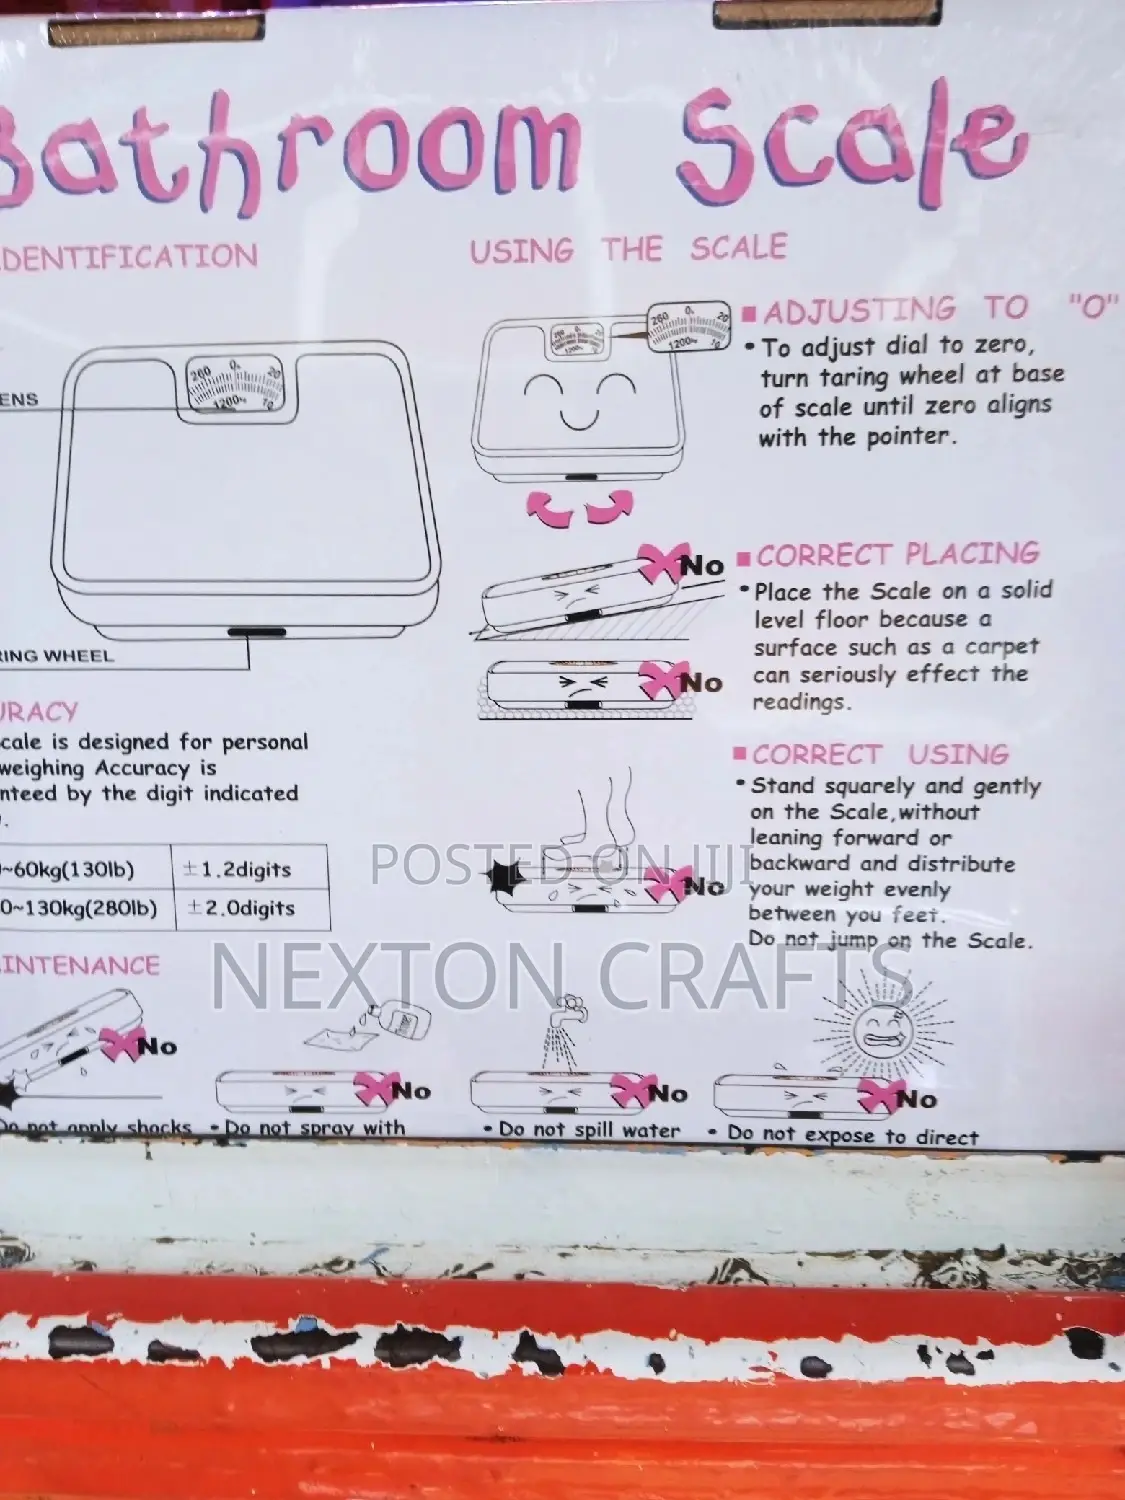 Bathroom Scale
IDENTIFICATION
ENS
260 0 20
120kg 10
RING WHEEL
URACY
cale is designed for personal
weighing Accuracy is
nteed by the digit indicated
~60kg(130lb) ±1.2digits
0~130kg(280lb) ±2.0digits
INTENANCE
No
Do not apply shocks
No
• Do not spray with
No
• Do not spill water
No
• Do not expose to direct
USING THE SCALE
260 0 20
ADJUSTING TO "O"
• To adjust dial to zero,
turn taring wheel at base
of scale until zero aligns
with the pointer.
No
No
CORRECT PLACING
• Place the Scale on a solid
level floor because a
surface such as a carpet
can seriously effect the
readings.
No
CORRECT USING
• Stand squarely and gently
on the Scale,without
leaning forward or
backward and distribute
your weight evenly
between you feet.
Do not jump on the Scale.
POSTED ON JIJI
NEXTON CRAFTS